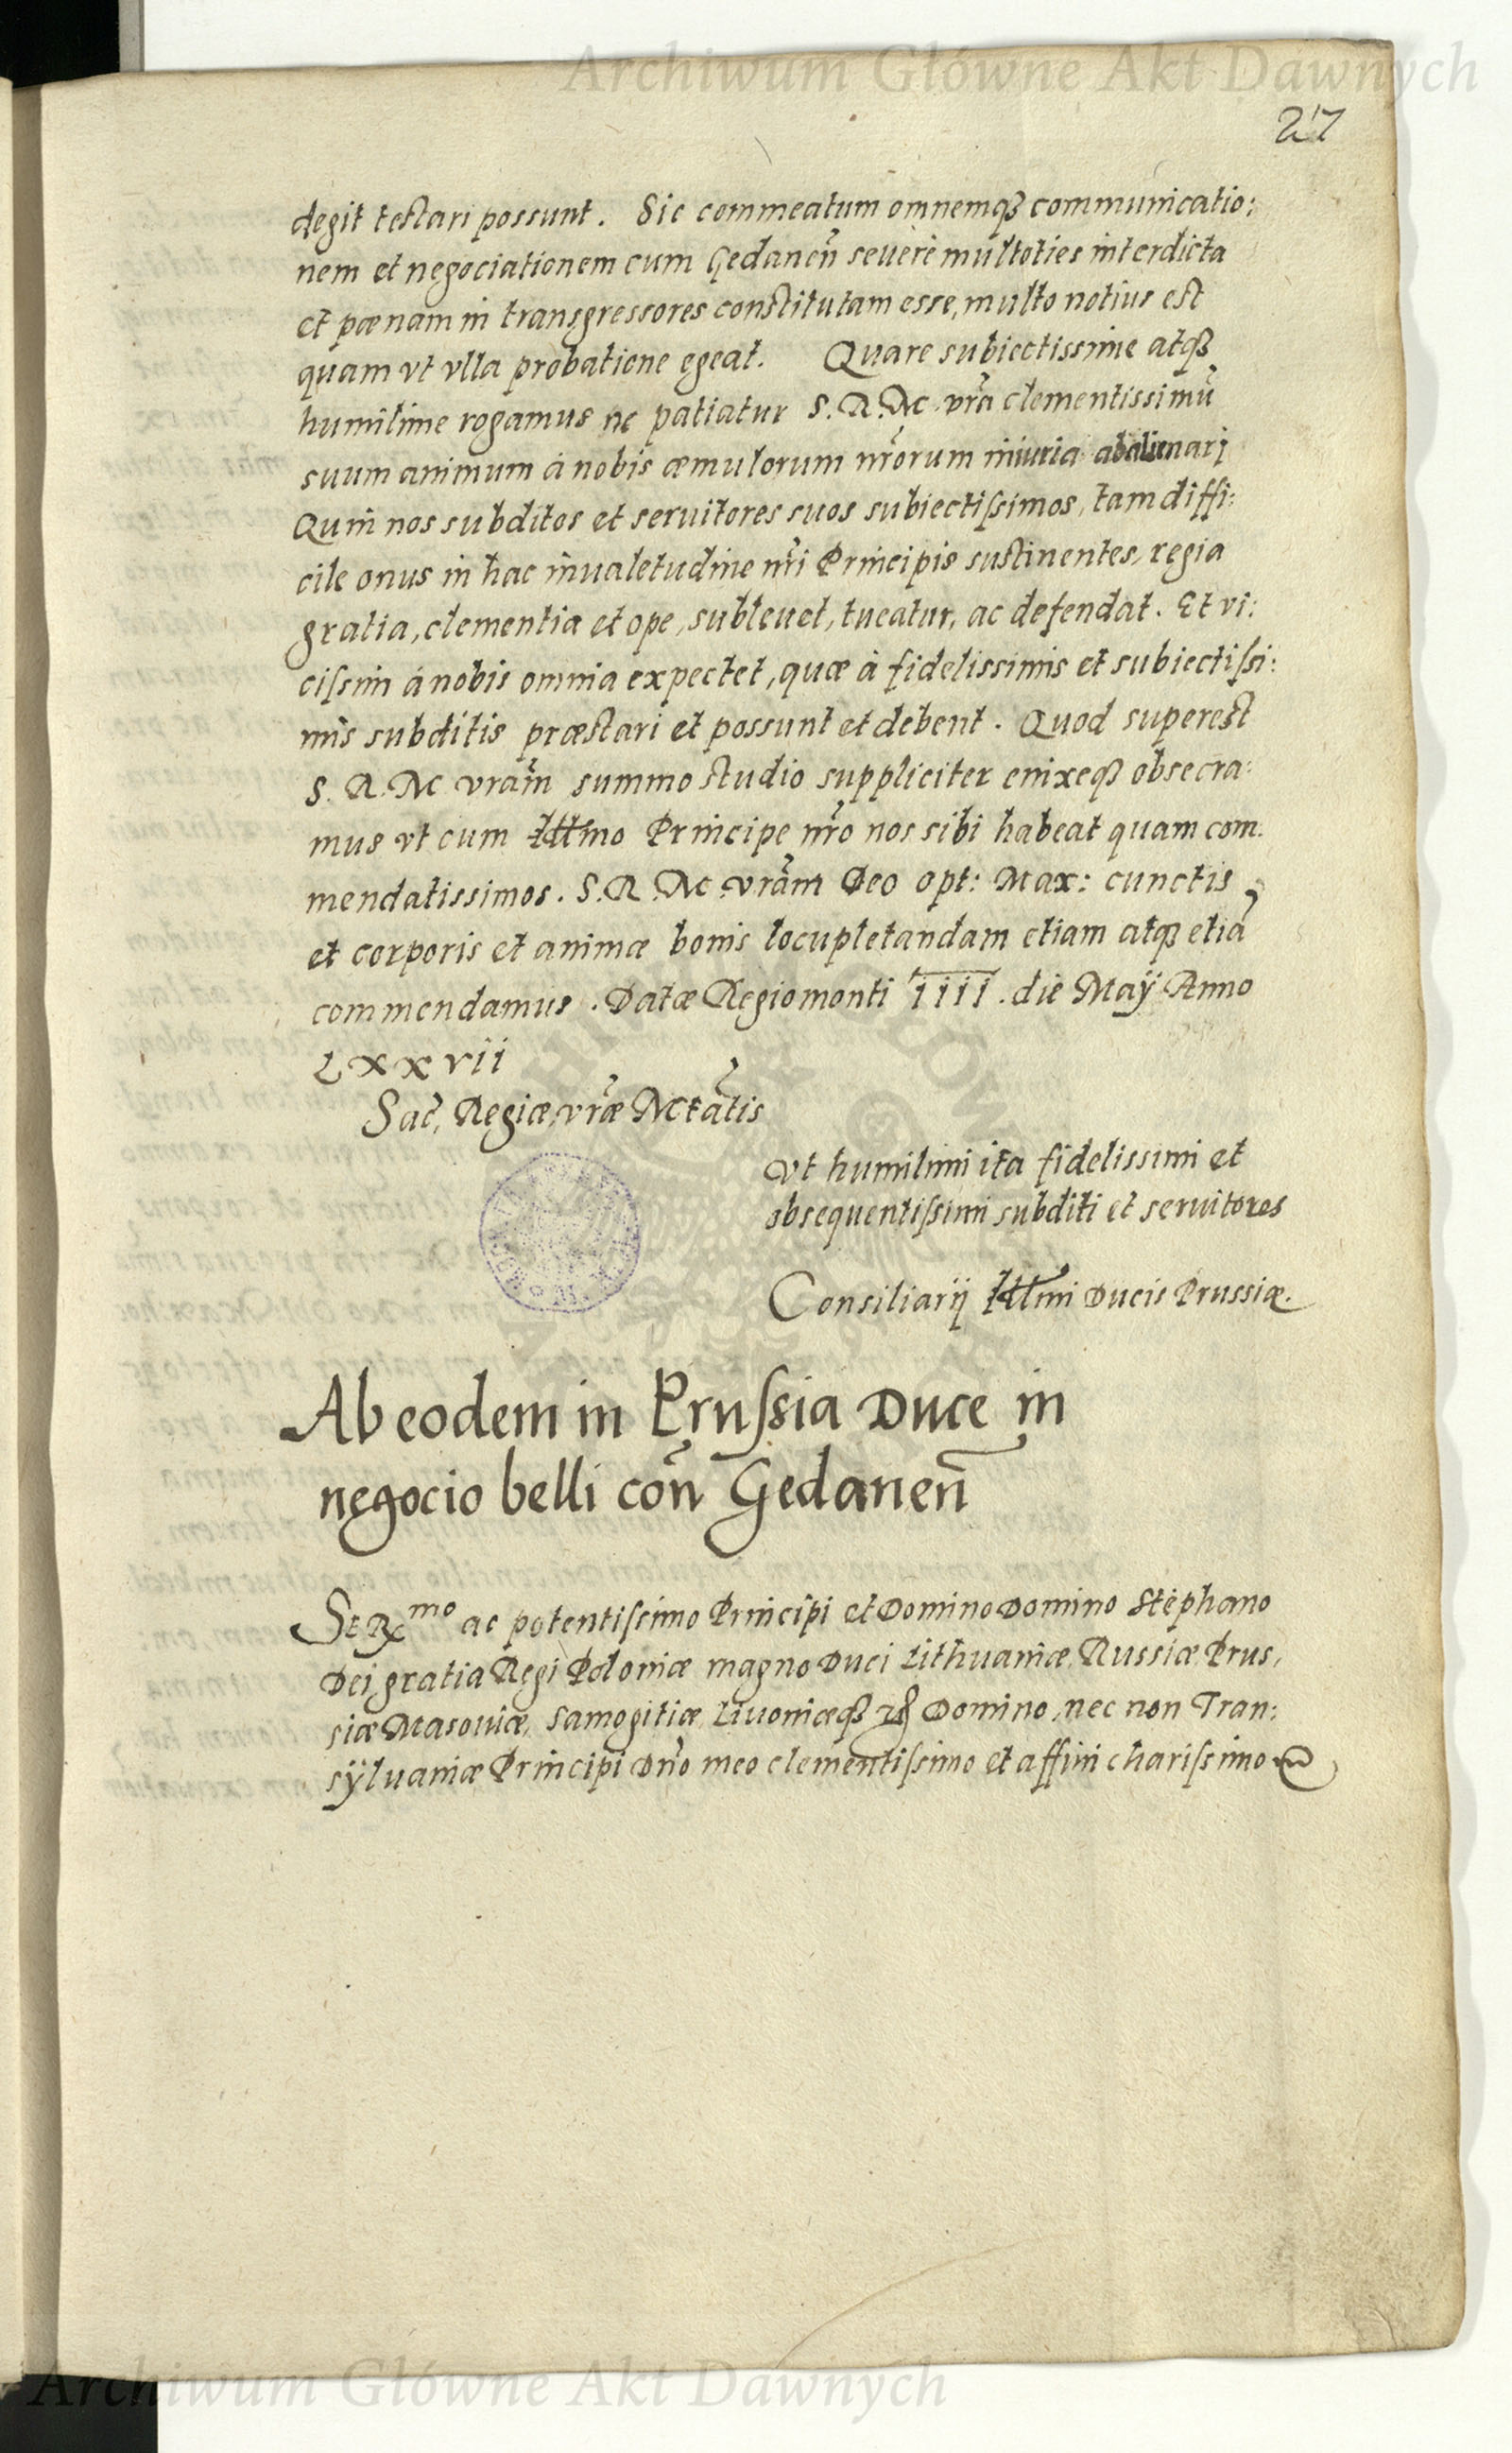 Archiwum Główne Akt Dawnych
27
degit testari possunt. Sic commeatum omnemqȝ communicatio:
nem et negociationem cum Gedaneñ seuerè multoties interdicta
et pœnam in transgressores constitutam esse, multo notius est
quam vt vlla probatione egeat. Quare subiectissime atqȝ
humilime rogamus ne patiatur S. R. M. vr̃a clementissimũ
suum animum à nobis æmulorum nr̃orum iniuria abalienarj
Quin nos subditos et seruitores suos subiectiſsimos, tam diffi:
cile onus in hac inualetudine nr̃i Principis sustinentes, regia
gratia, clementia et ope, subleuet, tueatur, ac defendat. Et vi:
ciſsim à nobis omnia expectet, quæ à fidelissimis et subiectiſsi:
mis subditis præstari et possunt et debent. Quod superest
S. R. M. vrãm summo studio suppliciter enixeqȝ obsecra:
mus vt cum Illmo Principe nr̃o nos sibi habeat quam com.
mendatissimos. S. R. M. vrãm Deo opt: Max: cunctis
et corporis et animæ bonis locupletandam etiam atqȝ etiã
commendamus. Datæ Regiomonti IIII. die Maÿ Anno
Lxxvii
Sac̃, Regiæ, vr̃æ Mtãtis
vt humilimi ita fidelissimi et
obsequentiſsimi subditi et seruitores
Consiliarij Illmi Ducis Prussiæ.
Ab eodem in Pruſsia Duce in
negocio belli con̄ Gedaneñ
Serᵐᵒ ac potentiſsimo Principi et Domino Domino Stephano
Dei gratia Regi Poloniæ magno Duci Lithuaniæ, Russiæ Prus,
siæ Masouiæ, Samogitiæ Liuoniæqȝ Domino, nec non Tran:
sÿluaniæ Principi Dño meo clementiſsimo et affini chariſsimo
Archiwum Główne Akt Dawnych